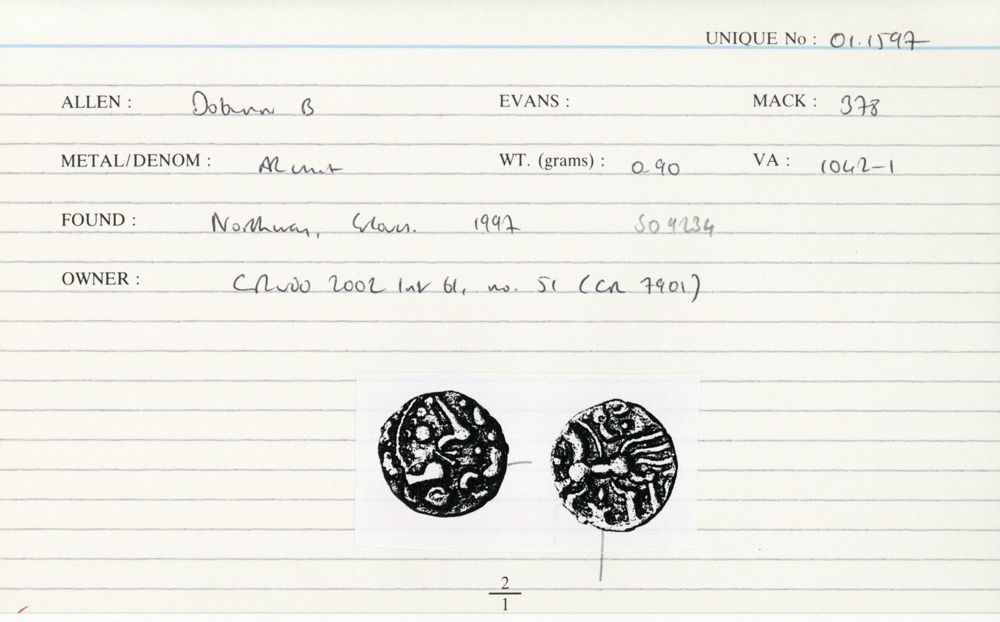 UNIQUE No : 01.1597
ALLEN : Dobunn B EVANS : MACK : 378
METAL/DENOM : AR unit WT. (grams) : 0.90 VA : 1042-1
FOUND : Northway, Glos. 1997 SO 9234
OWNER : 2002 Inv 61, no. 51 (CR 7901)
2
1